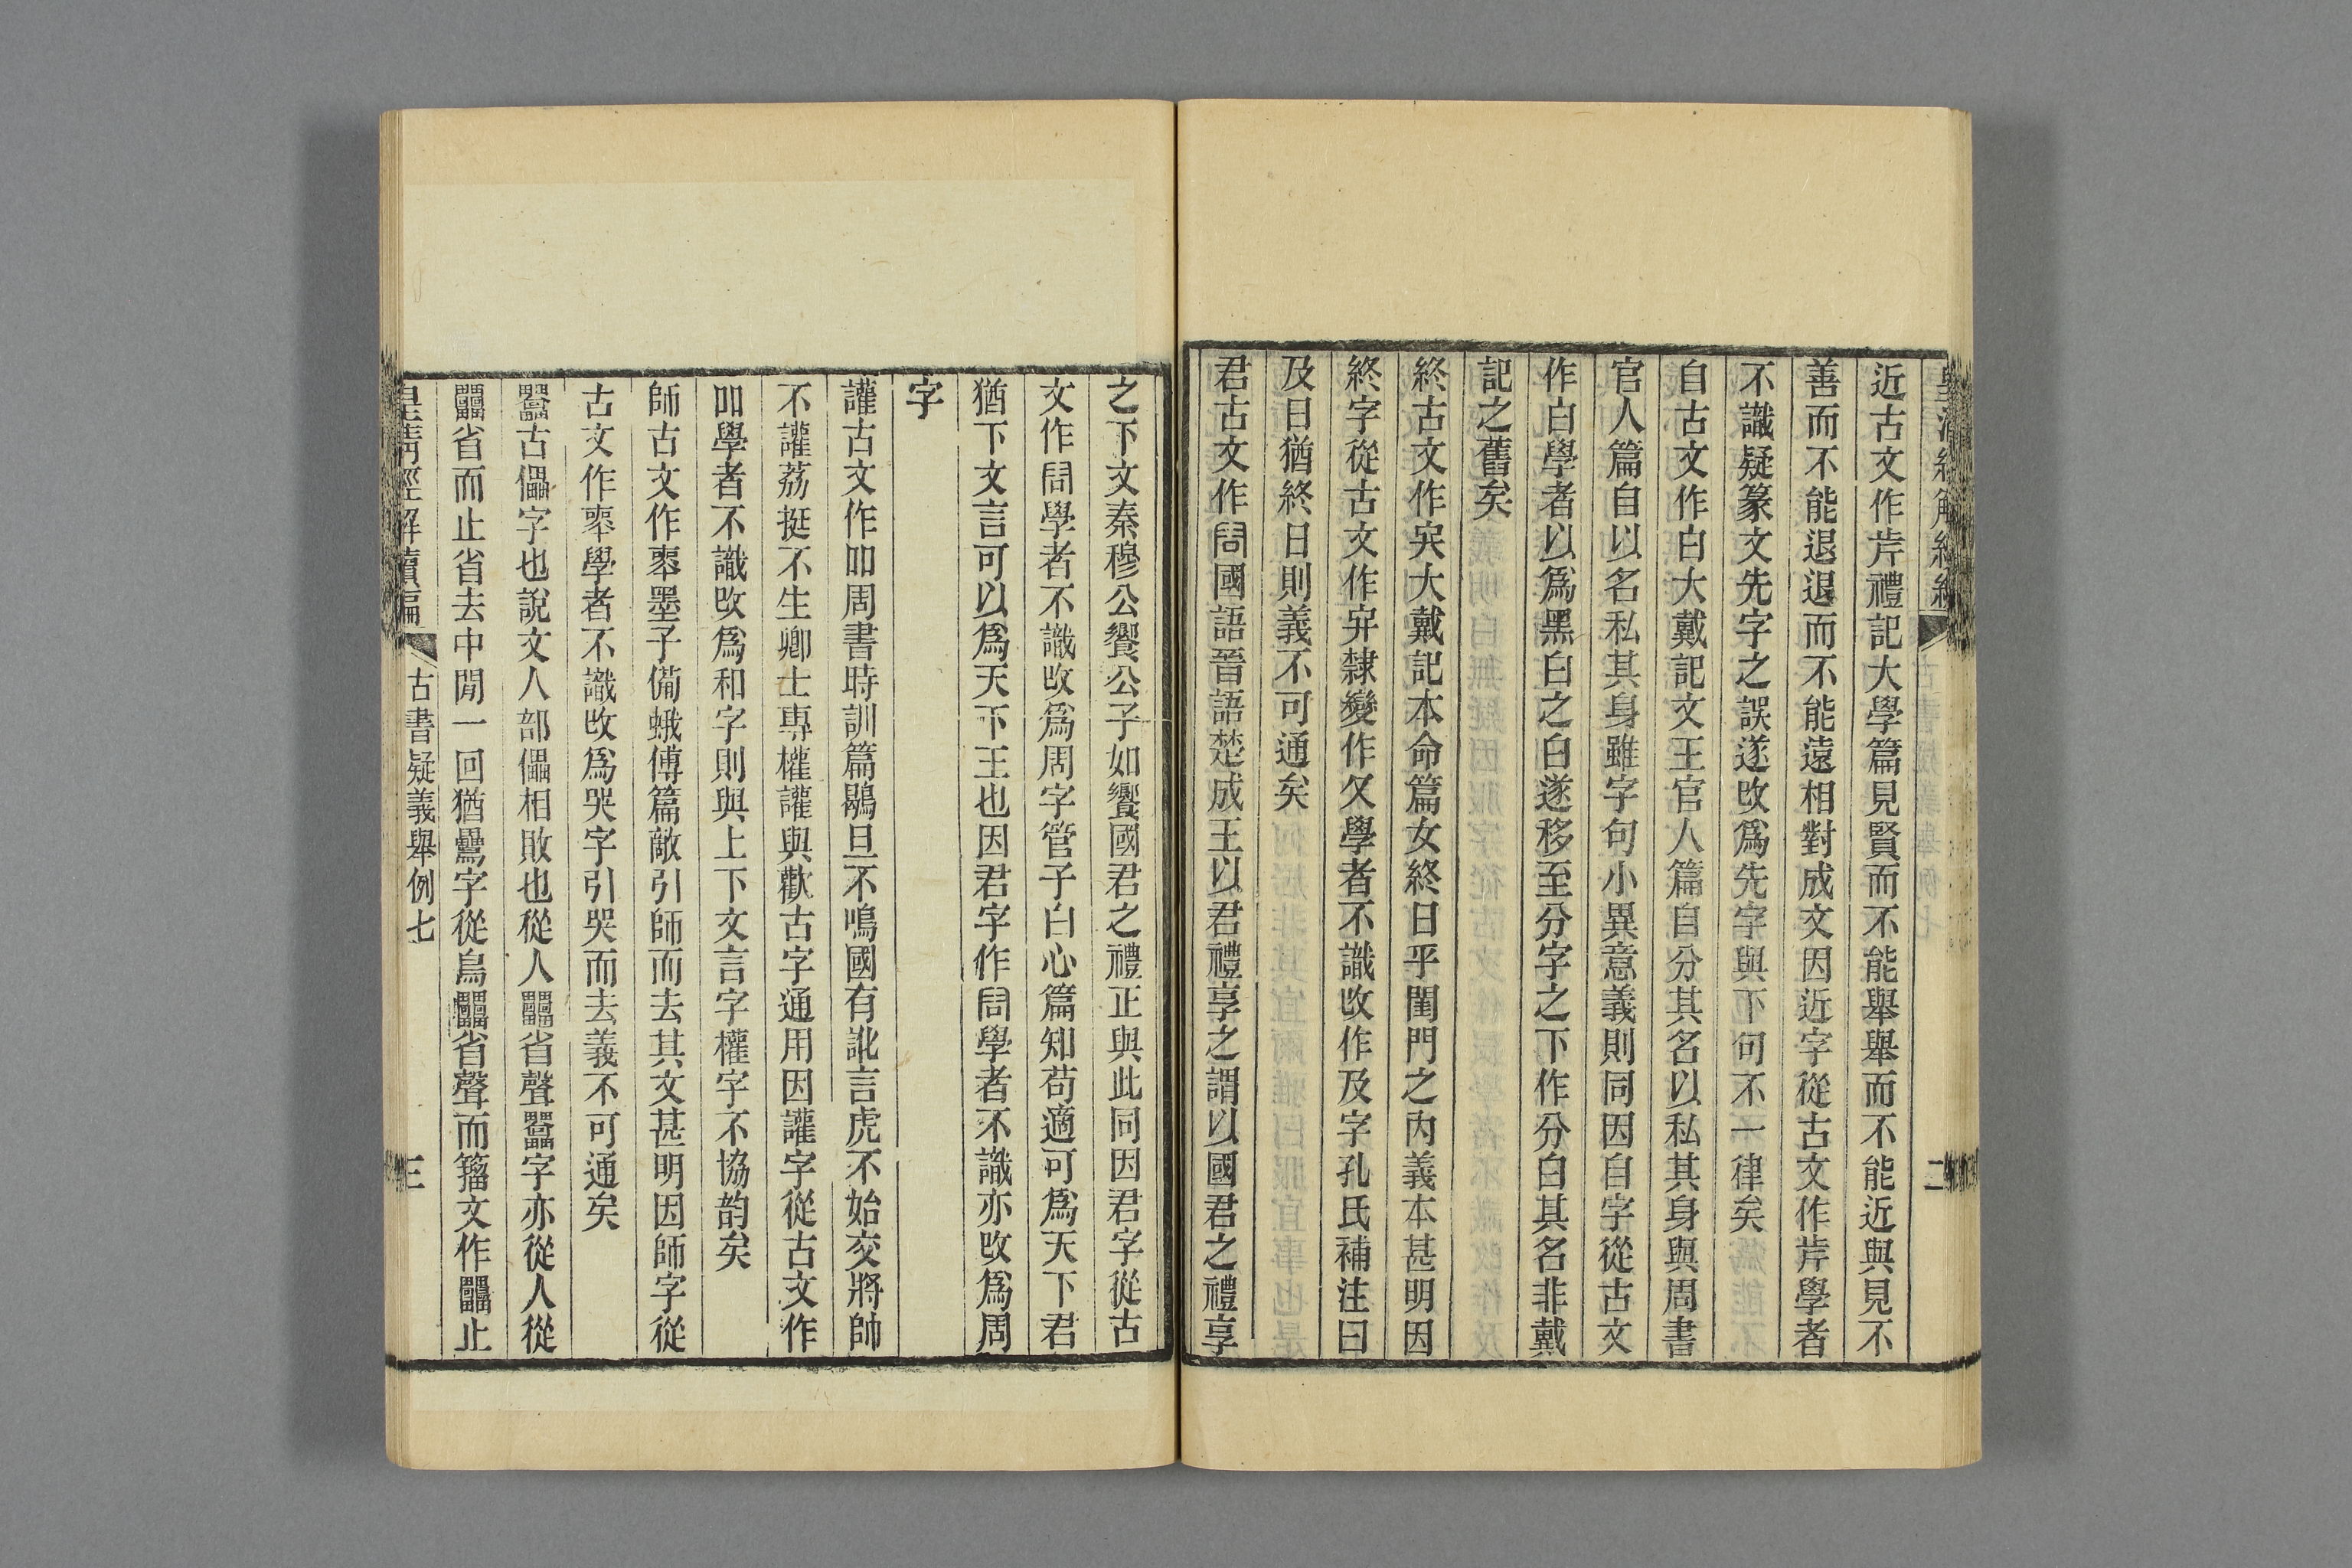 皇清經解續編
二
近古文作岸禮記大學篇見賢而不能舉舉而不能近與見不
善而不能退退而不能遠相對成文因近字從古文作岸學者
不識疑篆文先字之誤遂改爲先字與下句不一律矣
自古文作白大戴記文王官人篇自分其名以私其身與周書
官人篇自以名私其身雖字句小異意義則同因自字從古文
作白學者以爲黑白之白遂移至分字之下作分白其名非戴
記之舊矣
終古文作大戴記本命篇女終日乎閨門之內義本甚明因
終字從古文作隸變作夂學者不識改作及字孔氏補注曰
及日猶終日則義不可通矣
君古文作國語晉語楚成王以君禮享之謂以國君之禮享
之下文秦穆公饗公子如饗國君之禮正與此同因君字從古
文作學者不識改爲周字管子白心篇知苟適可爲天下君
猶下文言可以爲天下王也因君字作學者不識亦改爲周
字
讙古文作吅周書時訓篇鶡旦不鳴國有訛言虎不始交將帥
不讙荔挺不生卿士專權讙與歡古字通用因讙字從古文作
吅學者不識改爲和字則與上下文言字權字不協韵矣
師古文作墨子備蛾傅篇敵引師而去其文甚明因師字從
古文作學者不識改爲哭字引哭而去義不可通矣
古儡字也說文人部儡相敗也從人省聲字亦從人從
省而止省去中閒一回猶鸓字從鳥省聲而籀文作止
皇清經解續編
古書疑義舉例七
三